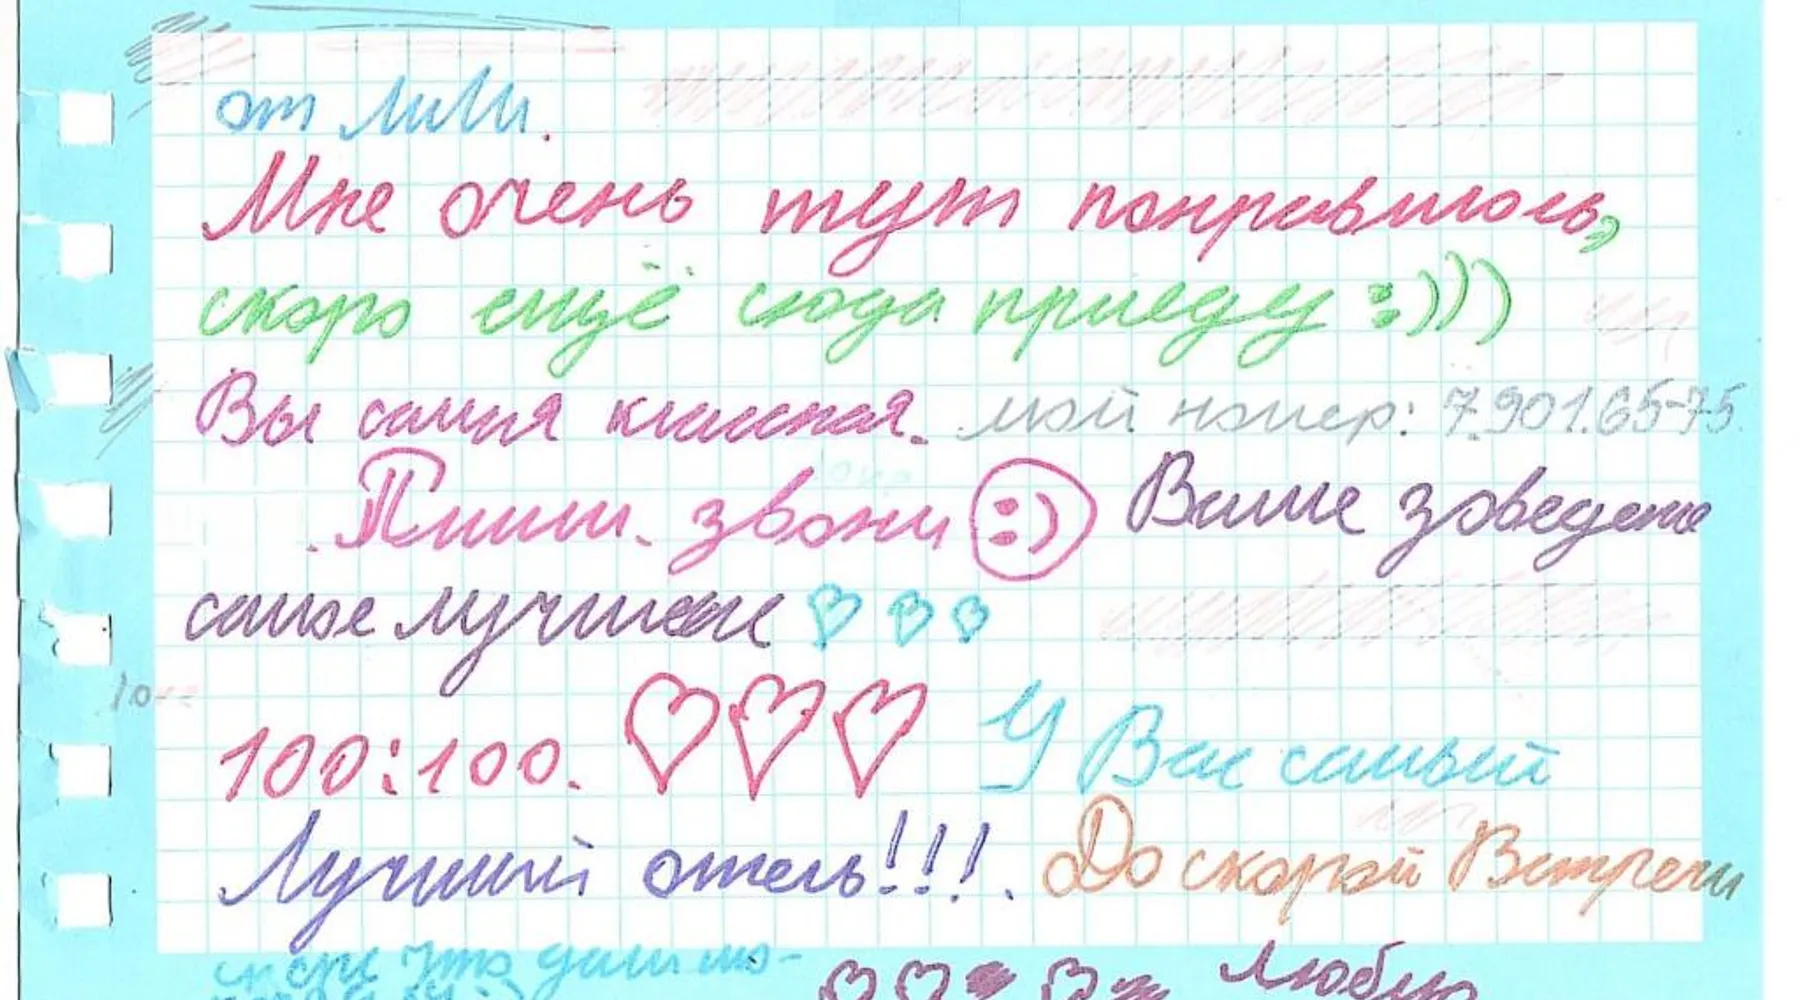 от Лили.
Мне очень тут понравилось,
скоро ещё сюда приеду :)))
Вы самая классная. мой номер: 7.901.65-75.
Пиши. звони :) Ваше заведение
самое лучшее
100:100. У Вас самый
Лучший отель!!!. До скорой Встречи
что дали
Люблю